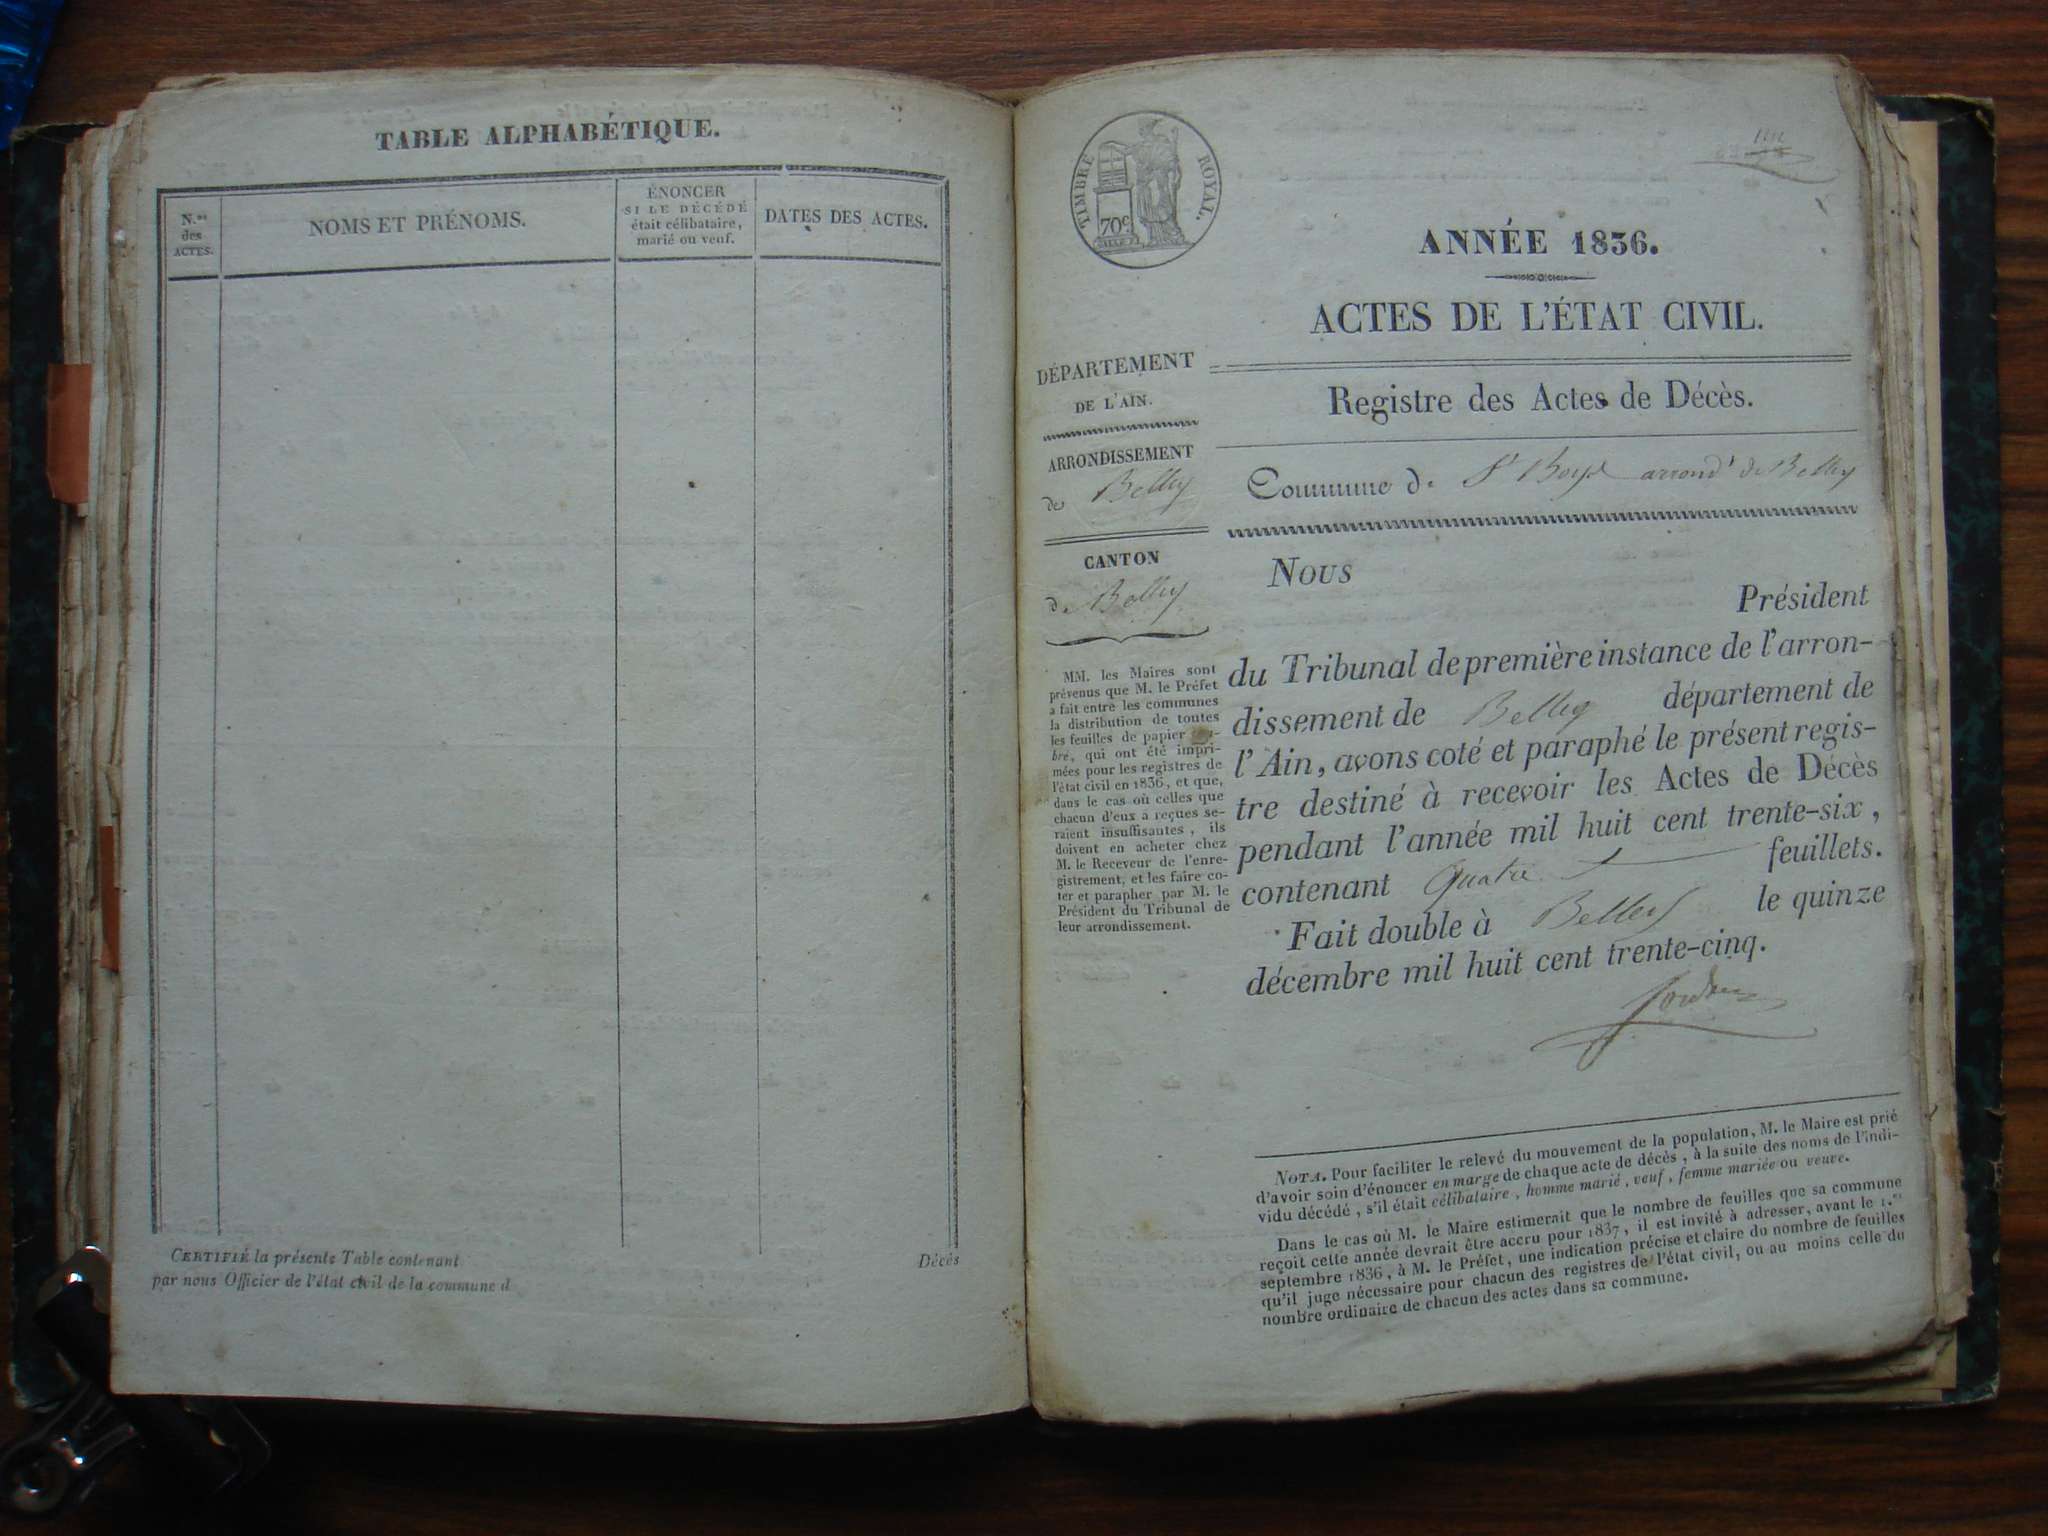 TABLE ALPHABÉTIQUE.
N.os
des
ACTES.
NOMS ET PRÉNOMS.
ÉNONCER
SI LE DÉCÉDÉ
était célibataire,
marié ou veuf.
DATES DES ACTES.
CERTIFIÉ la présente Table contenant Décès
par nous Officier de l'état civil de la commune d
TIMBRE ROYAL.
70c
ANNÉE 1836.
ACTES DE L'ÉTAT CIVIL.
Registre des Actes de Décès.
Commune de St Boys arrondt de Belley
DÉPARTEMENT
DE L'AIN.
ARRONDISSEMENT
de Belley
CANTON
de Belley
MM. les Maires sont
prévenus que M. le Préfet
a fait entre les communes
la distribution de toutes
les feuilles de papier
bré, qui ont été impri-
mées pour les registres de
l'état civil en 1836, et que,
dans le cas où celles que
chacun d'eux a reçues se-
raient insuffisantes, ils
doivent en acheter chez
M. le Receveur de l'enre-
gistrement, et les faire co-
ter et parapher par M. le
Président du Tribunal de
leur arrondissement.
Nous
Président
du Tribunal de première instance de l'arron-
dissement de Belley département de
l'Ain, avons coté et paraphé le présent regis-
tre destiné à recevoir les Actes de Décès
pendant l'année mil huit cent trente-six,
contenant Quatre feuillets.
Fait double à Belley le quinze
décembre mil huit cent trente-cinq.
NOTA. Pour faciliter le relevé du mouvement de la population, M. le Maire est prié
d'avoir soin d'énoncer en marge de chaque acte de décès, à la suite des noms de l'indi-
vidu décédé, s'il était célibataire, homme marié, veuf, femme mariée ou veuve.
Dans le cas où M. le Maire estimerait que le nombre de feuilles que sa commune
reçoit cette année devrait être accru pour 1837, il est invité à adresser, avant le 1.er
septembre 1836, à M. le Préfet, une indication précise et claire du nombre de feuilles
qu'il juge nécessaire pour chacun des registres de l'état civil, ou au moins celle du
nombre ordinaire de chacun des actes dans sa commune.